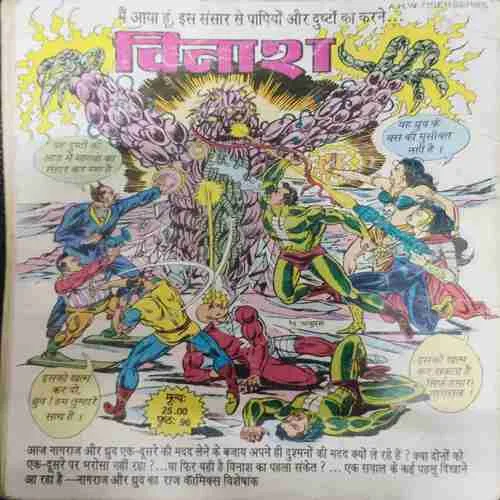 मैं आया हूं, इस संसार से पापियों और दुष्टों का करने...
विनाश
यह दुष्टों की
आड़ में मानवों का
संहार कर रहा है
यह ध्रुव के
बस की मुसीबत
नहीं है ।
इसको खत्म
कर दो,
ध्रुव ! हम तुम्हारे
साथ हैं ।
मूल्य:
25.00
पृष्ठ: 96
इसको खत्म
कर सकता है
सिर्फ हमारा
नागराज !
आज नागराज और ध्रुव एक-दूसरे की मदद लेने के बजाय अपने ही दुश्मनों की मदद क्यों ले रहे हैं ? क्या दोनों को
एक-दूसरे पर भरोसा नहीं रहा ?...या फिर यही है विनाश का पहला संकेत ? ... एक सवाल के कई पहलू दिखाने
आ रहा है —नागराज और ध्रुव का राज कॉमिक्स विशेषांक